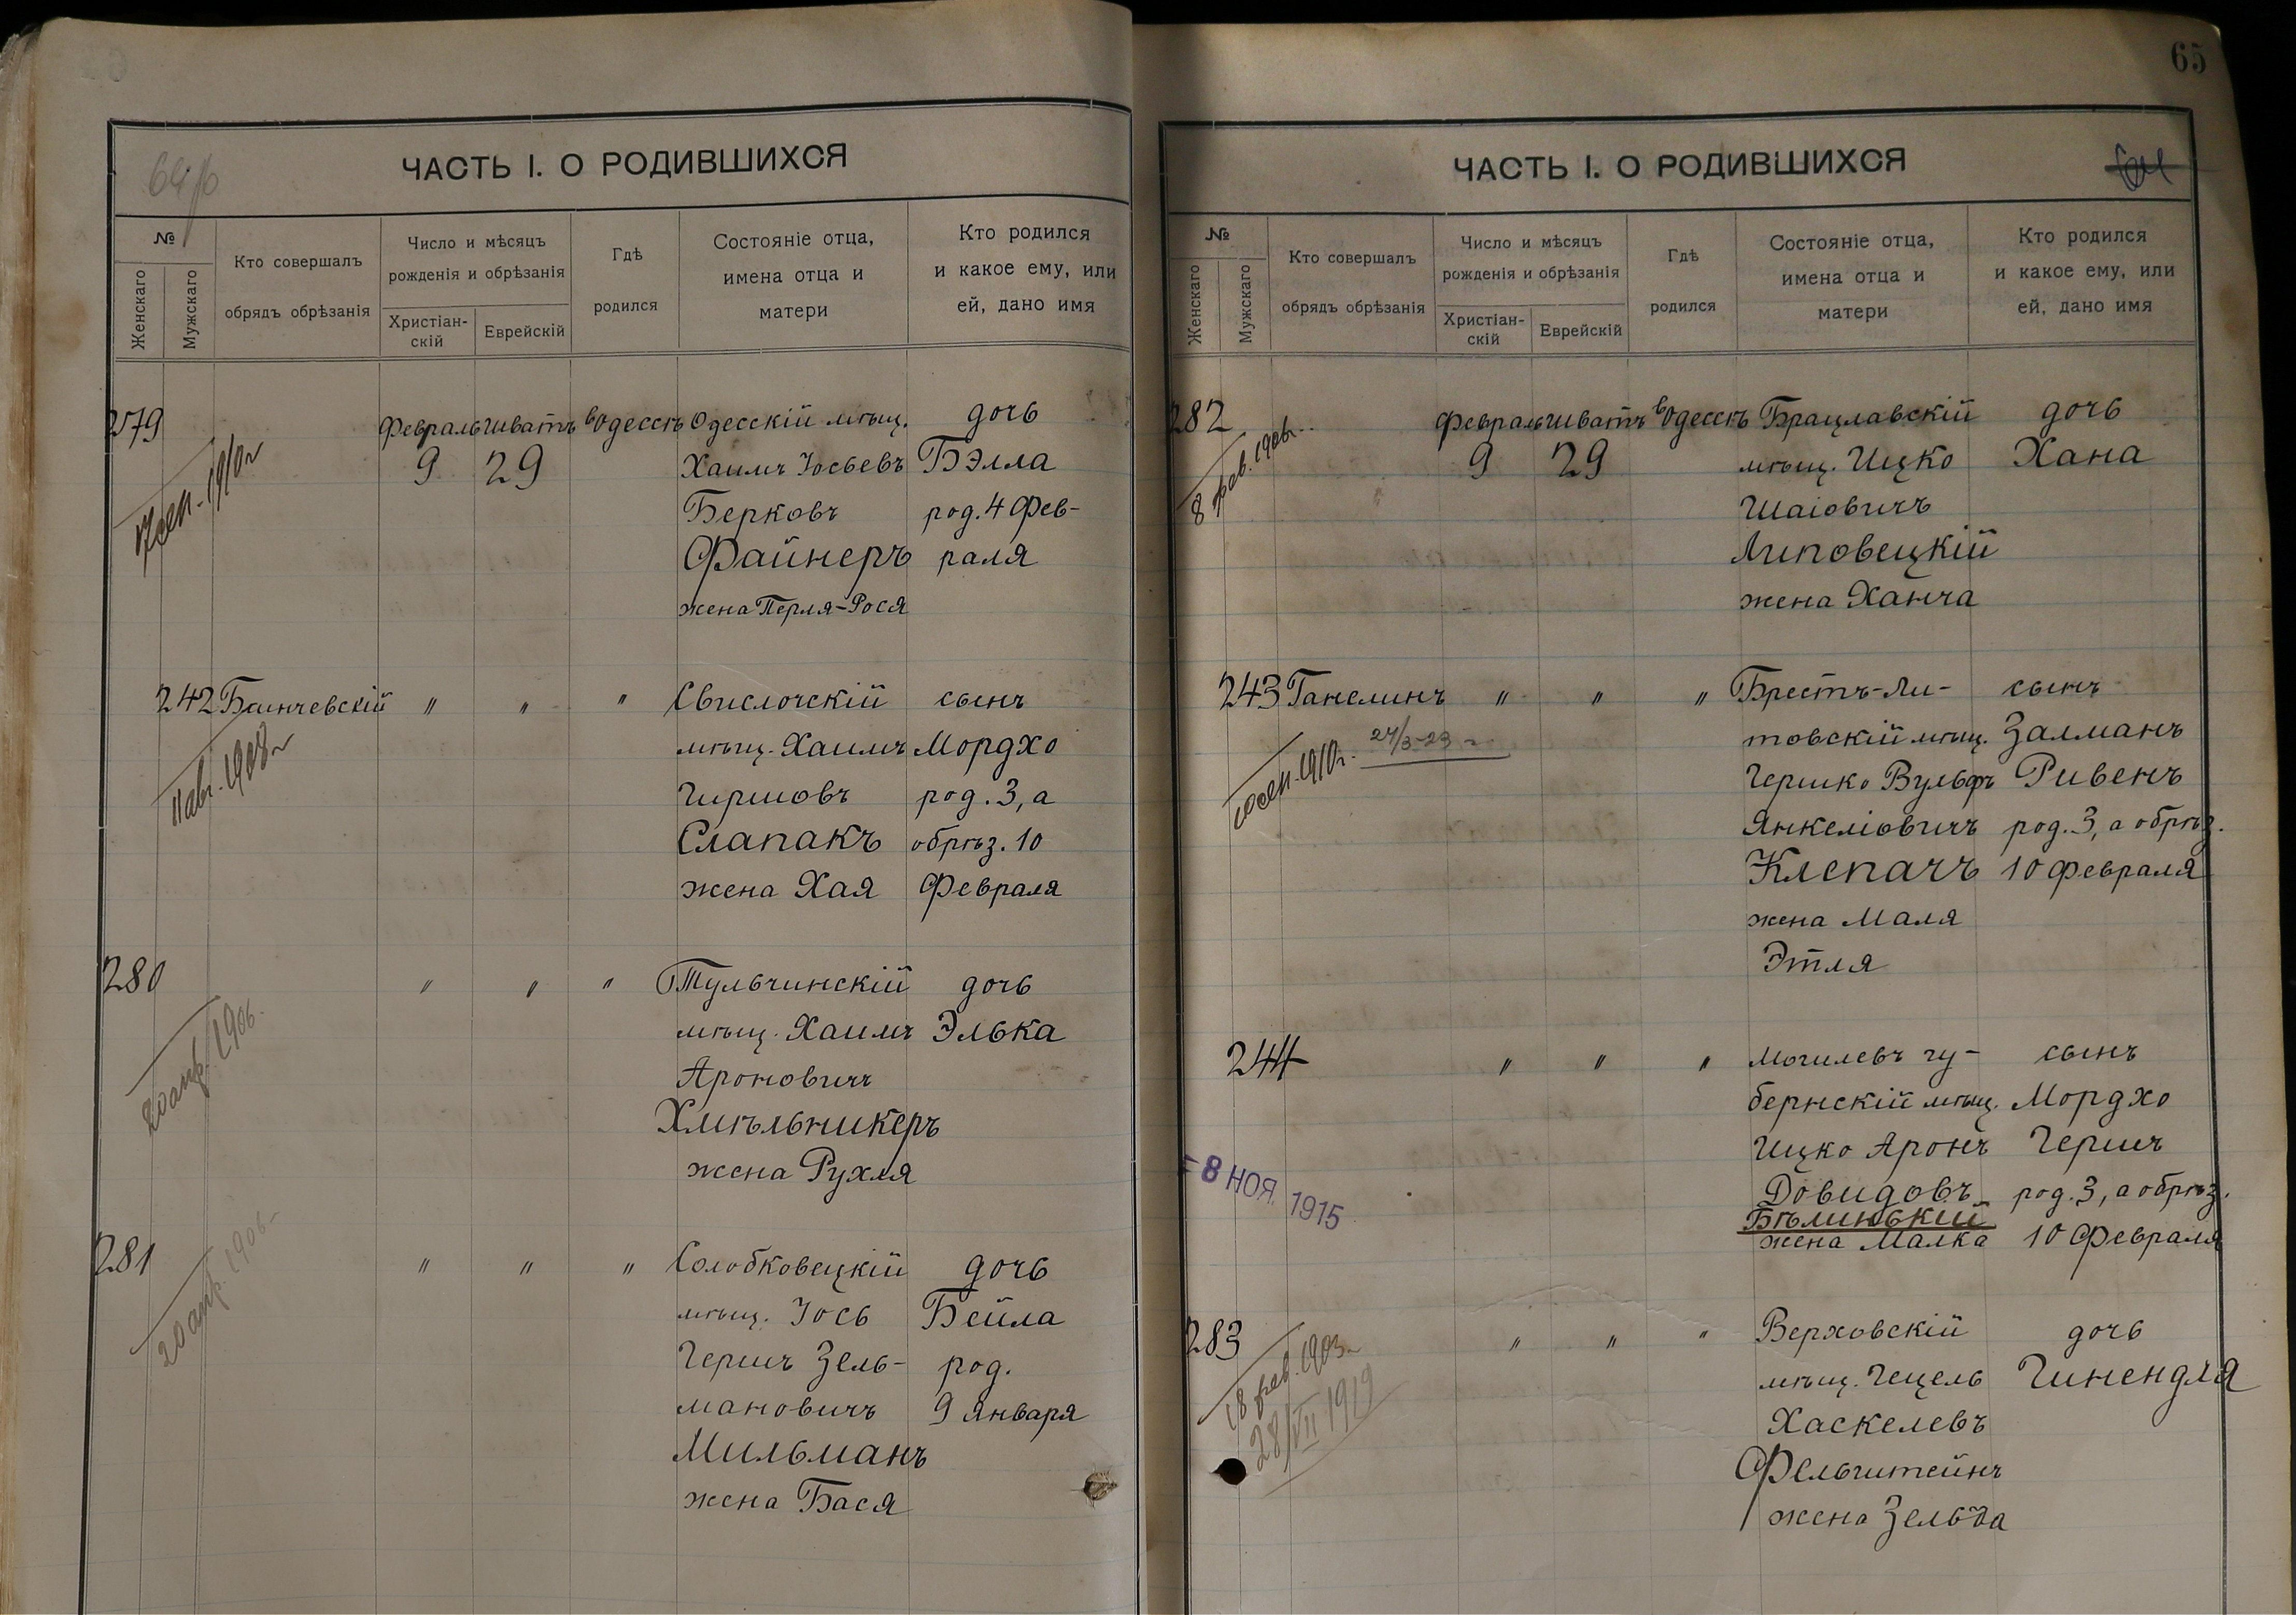 64/б
ЧАСТЬ I. О РОДИВШИХСЯ
№
Женскаго
Мужскаго
Кто совершалъ
обрядъ обрѣзанія
Число и мѣсяцъ
рожденія и обрѣзанія
Христіан-
скій
Еврейскій
Гдѣ
родился
Состояніе отца,
имена отца и
матери
Кто родился
и какое ему, или
ей, дано имя
279
Февраль Шватъ въ Одессѣ Одесскій мѣщ. дочь
9 29 Хаимъ Іосьевъ Бэлла
Берковъ род. 4 Фев-
Файнеръ раля
жена Перля-Рося
сен. 1910 г
242 Баинчевскій " " " Свислочскій сынъ
мѣщ. Хаимъ Мордхо
Гиршовъ род. 3, а
Слапакъ обрѣз. 10
жена Хая Февраля
11 авг. 1908 г
280 " " " Тульчинскій дочь
мѣщ. Хаимъ Элька
Ароновичъ
Хмѣльникеръ
жена Рухля
20 апр. 1906
281 " " " Солобковецкій дочь
мѣщ. Іось Бейла
Гершъ Зель- род.
мановичъ 9 января
Мильманъ
жена Бася
20 апр. 1906
65
ЧАСТЬ I. О РОДИВШИХСЯ
№
Женскаго
Мужскаго
Кто совершалъ
обрядъ обрѣзанія
Число и мѣсяцъ
рожденія и обрѣзанія
Христіан-
скій
Еврейскій
Гдѣ
родился
Состояніе отца,
имена отца и
матери
Кто родился
и какое ему, или
ей, дано имя
282 Февраль Шватъ въ Одессѣ Брацлавскій дочь
9 29 мѣщ. Ицко Хана
Шаіовичъ
Липовецкій
жена Ханча
8 фев. 1906 г.
243 Ганелинъ " " " Брестъ-Ли- сынъ
товскій мѣщ. Залманъ
Гершко Вульфъ Ривенъ
Янкеліовичъ род. 3, а обрѣз.
Клепачъ 10 февраля
жена Маля
Этля
сен. 1910 г. 24/3-23 г.
244 " " " Могилевъ гу- сынъ
бернскій мѣщ. Мордхо
Ицко Аронъ Гершъ
Довидовъ род. 3, а обрѣз.
Бѣлинькій
жена Малка 10 Февраля
- 8 НОЯ. 1915
283 " " " Верховскій дочь
мѣщ. Гецель Гинендля
Хаскелевъ
Фельштейнъ
жена Зельда
18 фев. 1903 г
28/VII 1919